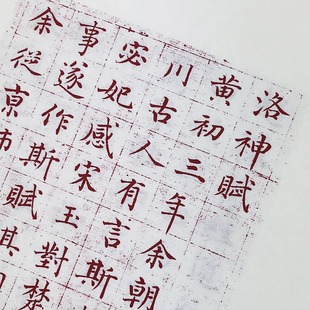 洛神賦
黄初三年余朝
川古人有言斯
宓妃感宋玉對楚
事遂作斯賦其
余從亰